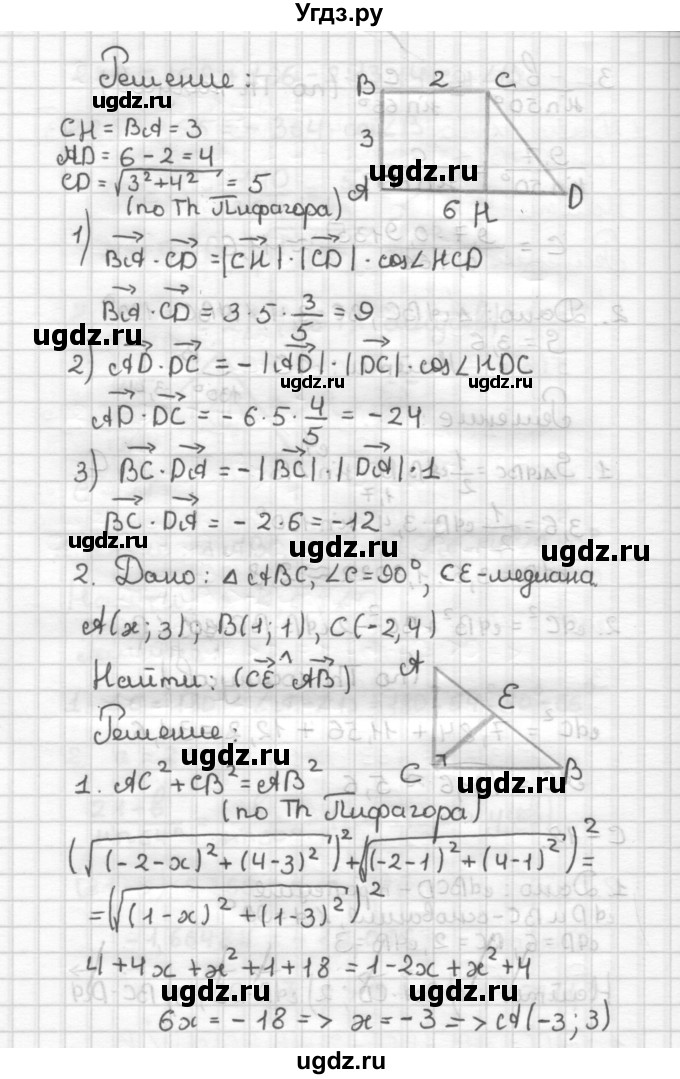 Угдз.ру
Решение:
ugdz.ru
B 2 C
CH = BA = 3
3
AD = 6 - 2 = 4
ugdz.ru
CD = √(3² + 4²) = 5
A D
ugdz.ru
(по Th Пифагора)
6 H
1) BA · CD = |CH| · |CD| · cos∠HCD
BA · CD = 3 · 5 · 3/5 = 9
ugdz.ru
ugdz.ru
2) AD · DC = - |AD| · |DC| · cos∠HDC
ugdz.ru
ugdz.ru
AD · DC = - 6 · 5 · 4/5 = - 24
3) BC · DA = - |BC| · |DA| · 1
BC · DA = - 2 · 6 = - 12
ugdz.ru
ugdz.ru
2. Дано: △ABC, ∠C = 90°, CE - медиана
A(x; 3); B(1; 1), C(-2, 4)
ugdz.ru
Найти: (CE ^ AB)
A
E
Решение:
ugdz.ru
C B
1. AC² + CB² = AB²
ugdz.ru
(по Th Пифагора)
(√((-2-x)² + (4-3)²))² + (√((-2-1)² + (4-1)²))² =
= (√((1-x)² + (1-3)²))²
4 + 4x + x² + 1 + 18 = 1 - 2x + x² + 4
ugdz.ru
ugdz.ru
6x = - 18 => x = - 3 => A(-3; 3)
ugdz.ru